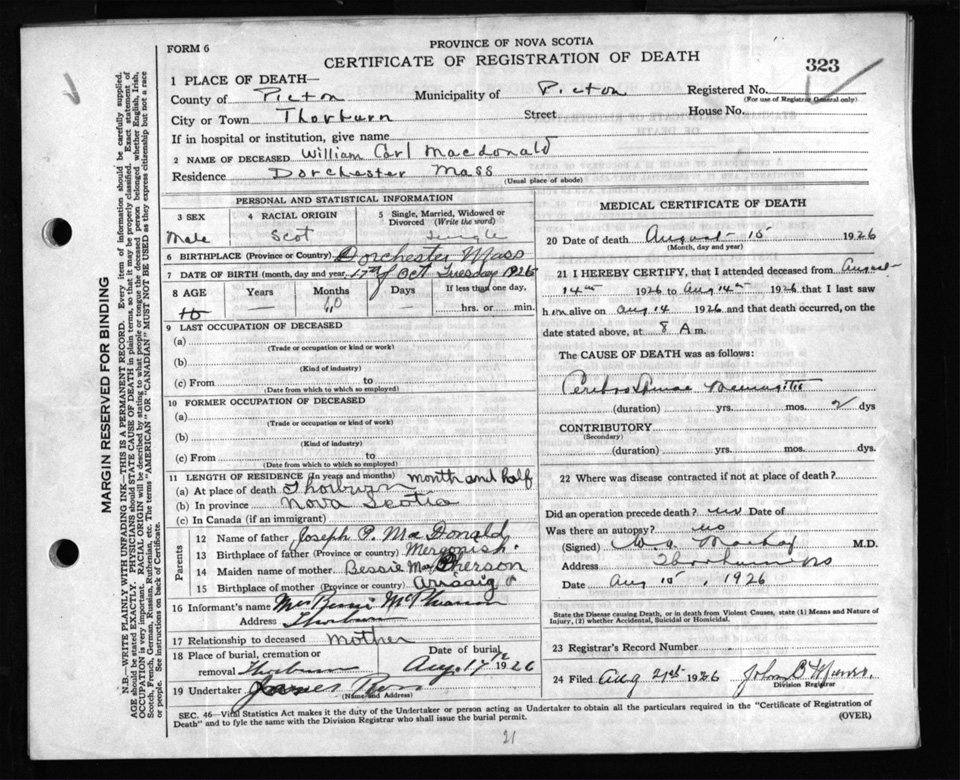 PROVINCE OF NOVA SCOTIA
FORM 6
CERTIFICATE OF REGISTRATION OF DEATH
323
1 PLACE OF DEATH—
County of Picton Municipality of Picton Registered No.
(For use of Registrar General only)
City or Town Thorburn Street House No.
If in hospital or institution, give name
2 NAME OF DECEASED William Carl Macdonald
Residence Dorchester Mass
(Usual place of abode)
MARGIN RESERVED FOR BINDING
N.B.—WRITE PLAINLY WITH UNFADING INK—THIS IS A PERMANENT RECORD. Every item of information should be carefully supplied.
AGE should be stated EXACTLY. PHYSICIANS should STATE CAUSE OF DEATH in plain terms, so that it may be properly classified. Exact statement of
OCCUPATION is very important. RACIAL ORIGIN will be described by stating to what people or tongue the deceased person belonged whether English, Irish,
Scotch, French, German, Russian, Ruthenian, etc. The terms "AMERICAN" OR "CANADIAN" MUST NOT BE USED as they express citizenship but not a race
or people. See instructions on back of Certificate.
PERSONAL AND STATISTICAL INFORMATION
3 SEX 4 RACIAL ORIGIN 5 Single, Married, Widowed or
Divorced (Write the word)
Male Scot Single
6 BIRTHPLACE (Province or Country) Dorchester Mass
7 DATE OF BIRTH (month, day and year 17th of Oct Tuesday 1925
8 AGE Years Months Days If less than one day,
10 — 10 hrs. or min.
9 LAST OCCUPATION OF DECEASED
(a)
(Trade or occupation or kind or work)
(b)
(Kind of industry)
(c) From to
(Date from which to which so employed)
10 FORMER OCCUPATION OF DECEASED
(a)
(Trade or occupation or kind of work)
(b)
(Kind of industry)
(c) From to
(Date from which to which so employed)
11 LENGTH OF RESIDENCE (in years and months) month and half
(a) At place of death Thorburn
(b) In province Nova Scotia
(c) In Canada (if an immigrant)
Parents
12 Name of father Joseph P. MacDonald
13 Birthplace of father (Province or country)
14 Maiden name of mother. Bessie MacPherson
15 Birthplace of mother (Province or country) Arisaig
16 Informant's name Mrs McPherson
Address Thorburn
17 Relationship to deceased mother
18 Place of burial, cremation or Date of burial
removal Thorburn Aug. 17th 1926
19 Undertaker James
(Name and Address)
MEDICAL CERTIFICATE OF DEATH
20 Date of death August 15 1926
(Month, day and year)
21 I HEREBY CERTIFY, that I attended deceased from August
14th 1926 to Aug 14th 1926 that I last saw
him alive on Aug 14 1926 and that death occurred, on the
date stated above, at 8 A m.
The CAUSE OF DEATH was as follows:
Cerebro Spinal Meningitis
(duration) yrs. mos. 2 dys
CONTRIBUTORY
(Secondary)
(duration) yrs. mos. dys.
22 Where was disease contracted if not at place of death?
Did an operation precede death? no Date of
Was there an autopsy? no
(Signed) Mackay M.D.
Address Thorburn NS
Date Aug 15, 1926
State the Disease causing Death, or in death from Violent Causes, state (1) Means and Nature of
Injury, (2) whether Accidental, Suicidal or Homicidal.
23 Registrar's Record Number
24 Filed Aug 21st 1926 John C Munro.
Division Registrar
SEC. 46—Vital Statistics Act makes it the duty of the Undertaker or person acting as Undertaker to obtain all the particulars required in the "Certificate of Registration of
Death" and to fyle the same with the Division Registrar who shall issue the burial permit. (OVER)
21